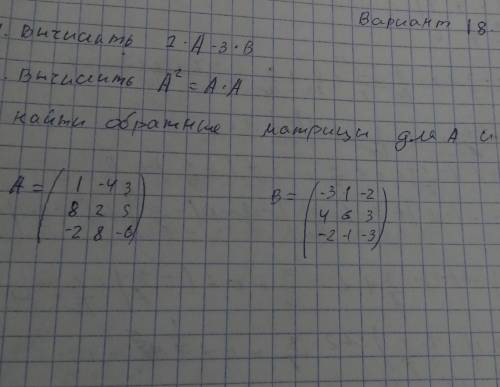 Вариант 18.
. Вычислить 2·A-3·B
. Вычислить A² = A·A
найти обратные матрици для A и
A = ( 1 -4 3
8 2 5
-2 8 -6 )
B = ( -3 1 -2
4 6 3
-2 -1 -3 )